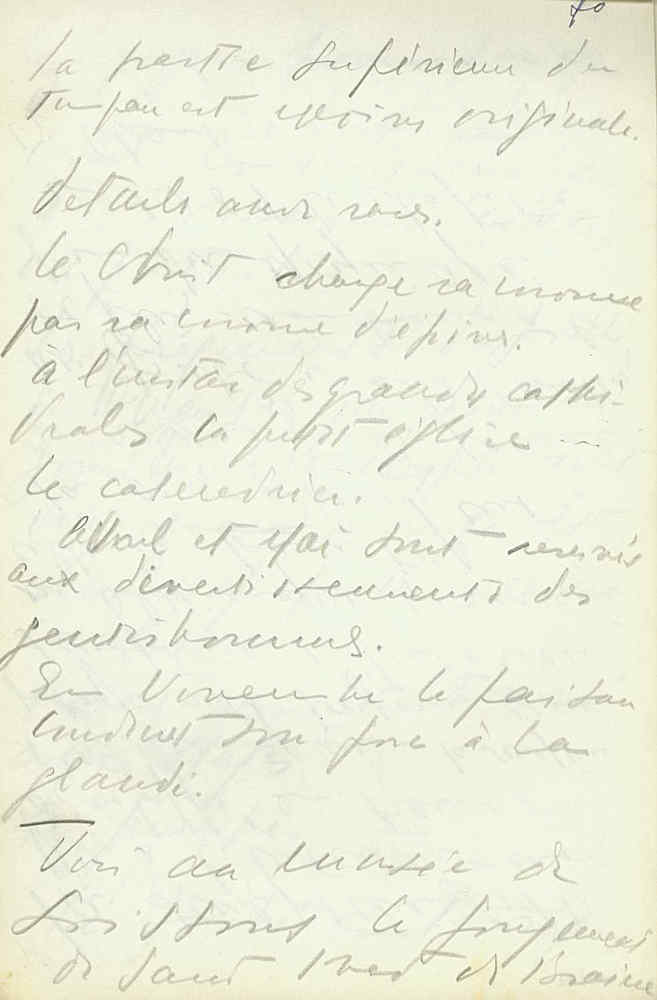 70
la partie supérieure du
tympan est moins originale.
Détails audacieux.
le Christ change sa couronne
par sa couronne d'épines.
à l'instar des grandes cathé-
drales la petite église ...
le calendrier.
Avril et Mai sont réservés
aux divertissements des
gentishommes.
En Novembre le paisan
conduit son porc à la
glandée.
Voir au musée de
Soissons le jugement
de Saint Yved de Braine